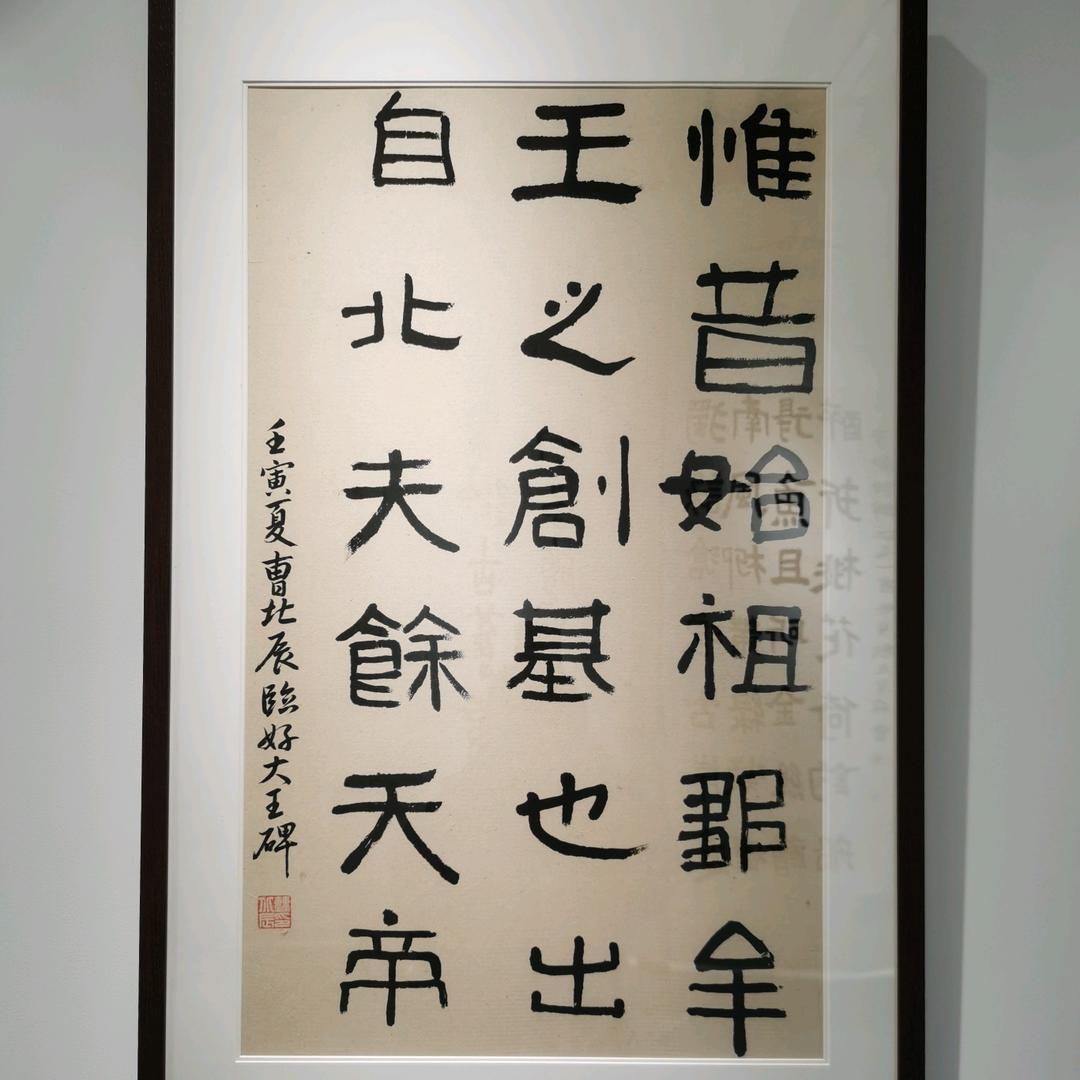 惟昔始祖鄒牟
王之創基也出
自北夫餘天帝
壬寅夏曹北辰臨好大王碑